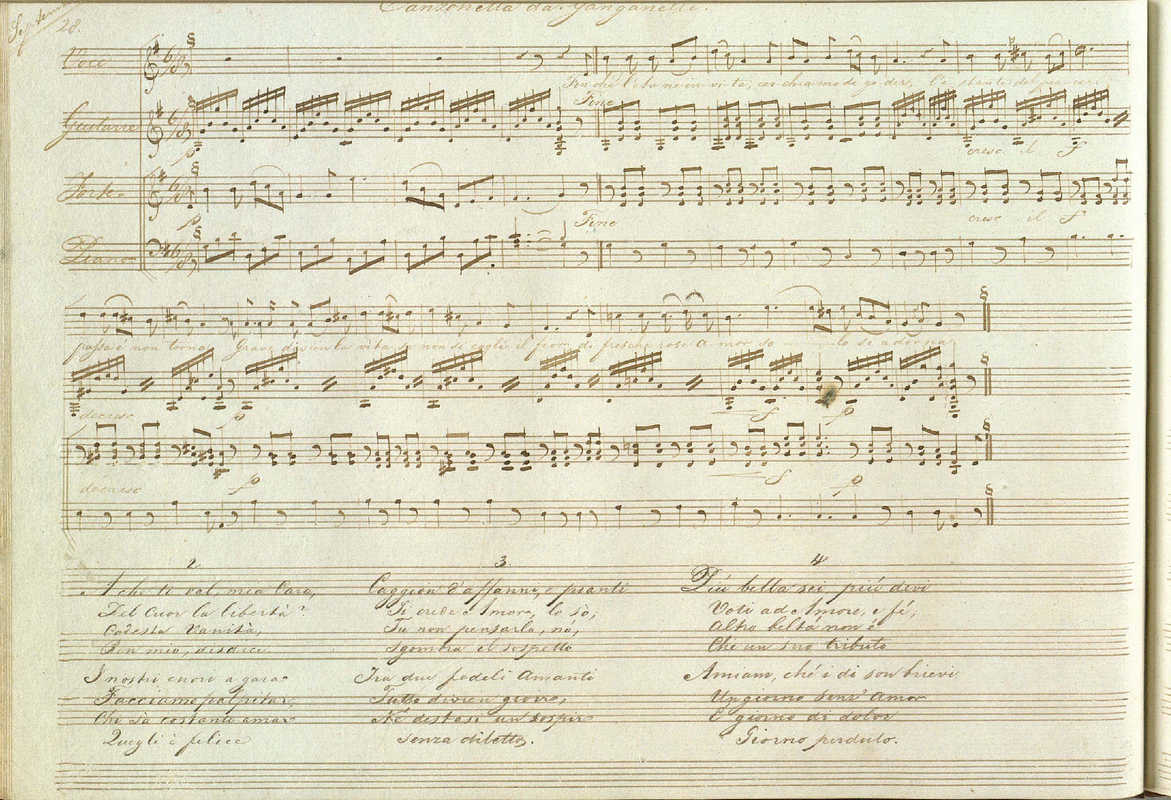 28.
Canzonetta da Ganganelli.
Voce
Fin che l'età ne invita, cerchiamo di goder, l'
Fine
Guitarre
p
cresc il f
Forte
p
Fine
cresc il f
Piano
passa e non torna, Grave divien la vita, se non si coglie il fior di fresche rose Amor so lo si adorna
decresc p f p
decresc p f p
2
A che ti val, mia Cara,
Del Cuor la libertà?
Codesta Vanità,
Ben mio, disdice
I nostri cuori a gara
Facciamo palpitar,
Chi sà costante amar
Quegli è felice
3
Caggion d'affanni, e pianti
Si crede Amore, lo sò;
Tu non pensarlo, nò,
Sgombra il sospetto
Tra due fedeli Amanti
Tutto divien gioire,
Nè destasi un sospir
Senza diletto.
4
Più bella sei più devi
Voti ad Amore, e fé,
Altro beltà non è
Che un suo tributo
Amiam, ché i dì son brievi,
Un giorno senz' Amor
È giorno di dolor
Giorno perduto.